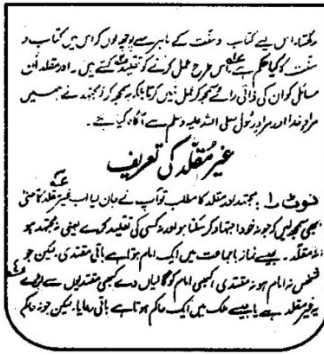 رکھتا، اس لیے کتاب و سنت کے ماہر سے پوچھ لوں کہ اس میں کتاب و
سنت کا کیا حکم ہے اس طرح عمل کرنے کو تقلید کہتے ہیں۔ اور مقلد ان
مسائل کو ان کی ذاتی رائے سمجھ کر عمل نہیں کرتا بلکہ یہ سمجھ کر کہ مجتہد نے ہمیں
مراد خدا اور مراد رسول صلی اللہ علیہ وسلم سے آگاہ کیا ہے۔
غیر مقلد کی تعریف
نوٹ ۱: مجتہد اور مقلد کا مطلب تو آپ نے جان لیا اب غیر مقلد کا معنی
بھی سمجھ لیں کہ جو نہ خود اجتہاد کر سکتا ہو اور نہ کسی کی تقلید کرے یعنی نہ مجتہد ہو
نہ مقلد۔ جیسے نماز باجماعت میں ایک امام ہوتا ہے باقی مقتدی، لیکن جو
شخص نہ امام ہو نہ مقتدی، کبھی امام کو گالیاں دے کبھی مقتدیوں سے لڑے
یہ غیر مقلد ہے یا جیسے ملک میں ایک حاکم ہوتا ہے باقی رعایا، لیکن جو نہ حاکم